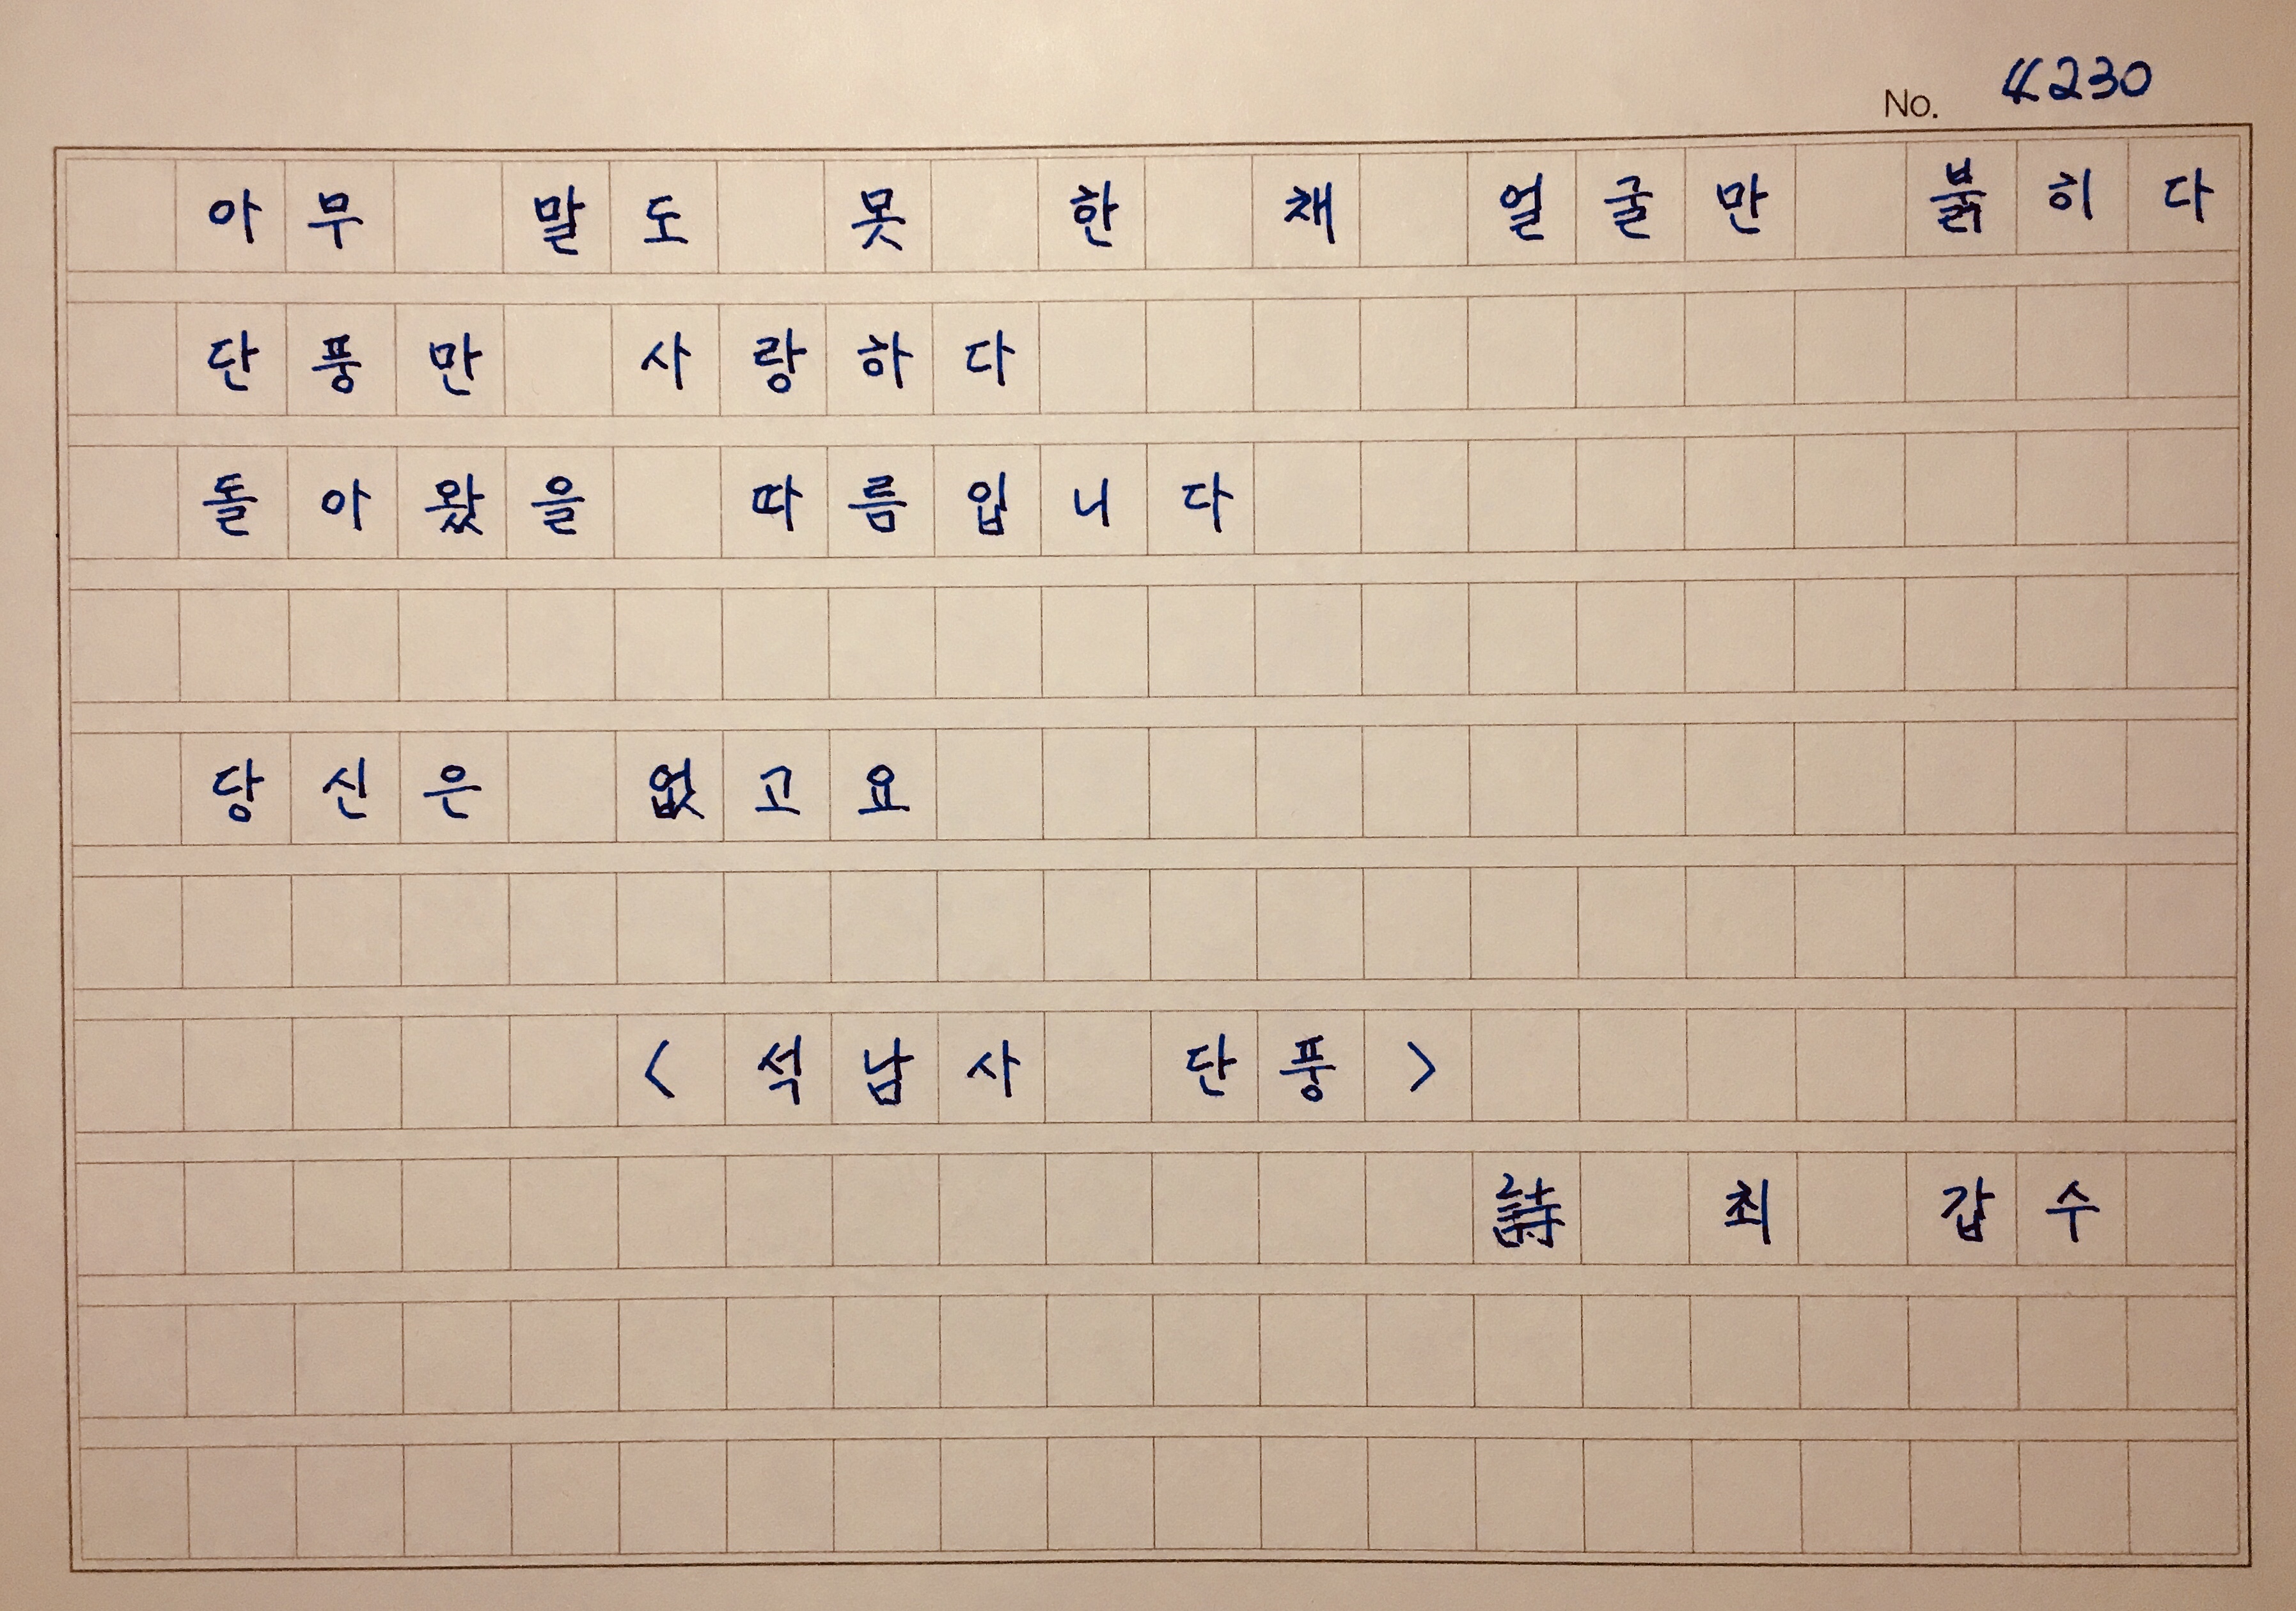 No. 4230
아무 말도 못 한 채 얼굴만 붉히다
단풍만 사랑하다
돌아왔을 따름입니다
당신은 없고요
<석남사 단풍>
詩 최 갑수